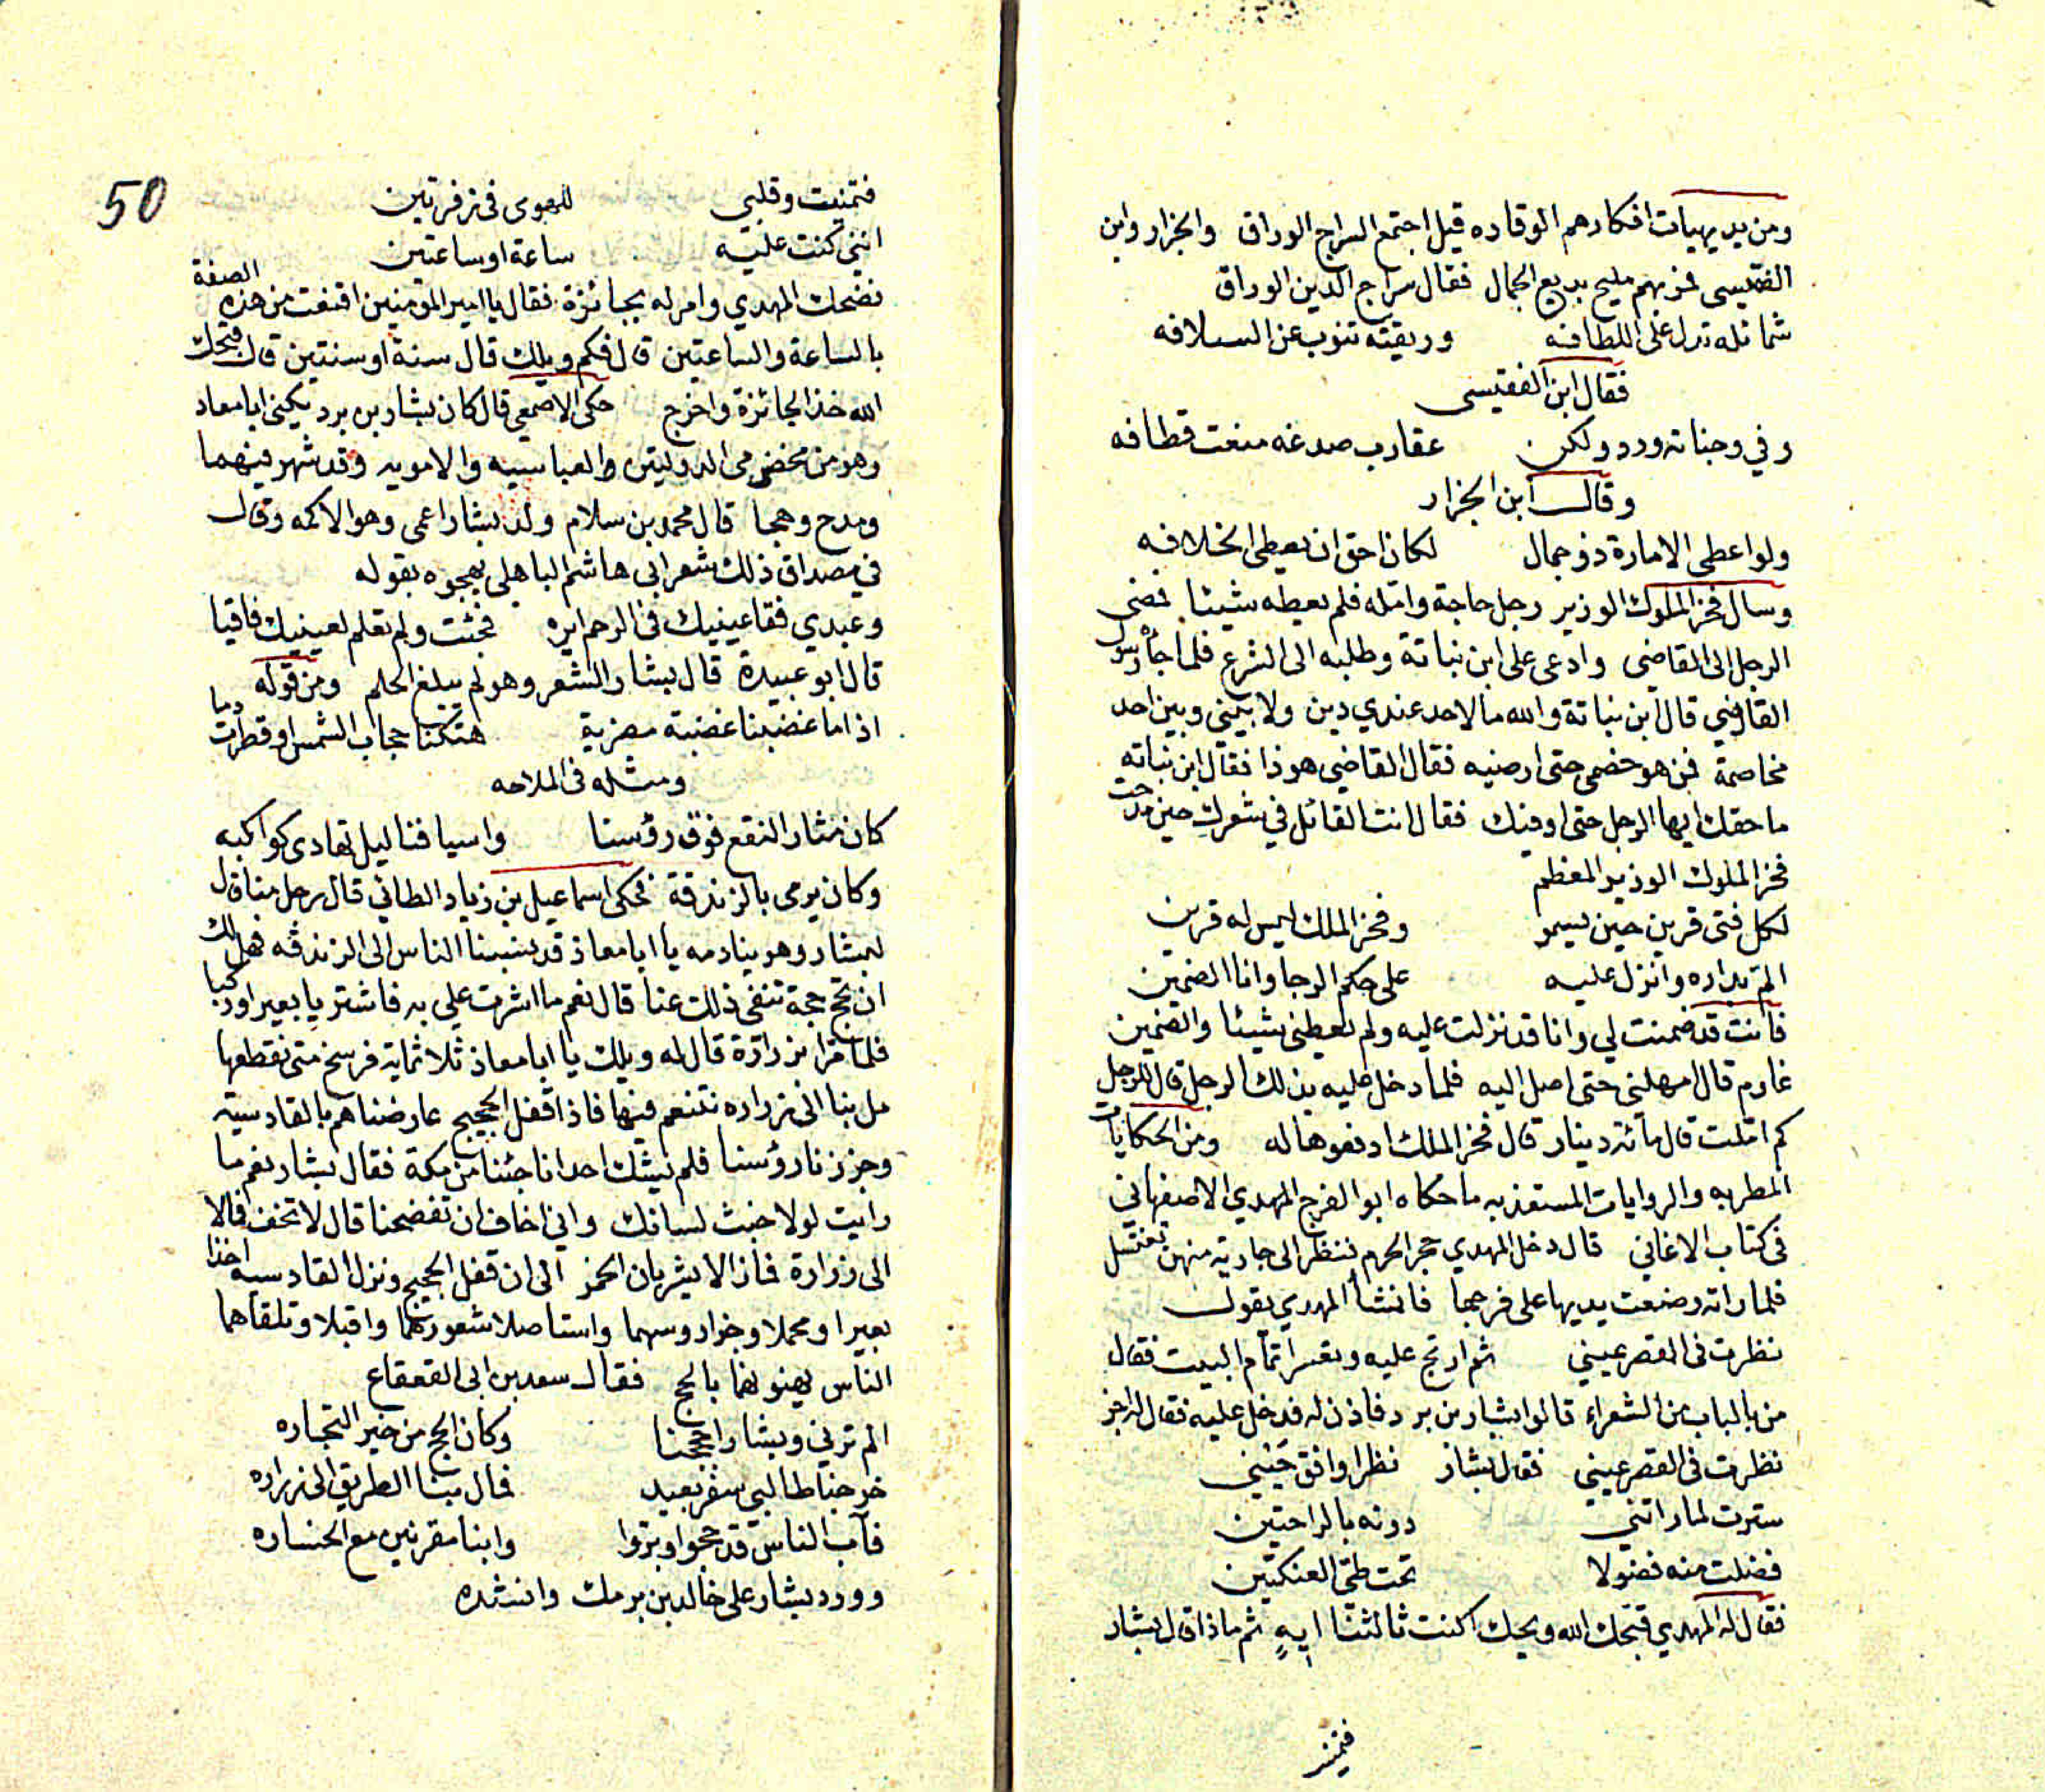 ومن بديهيات افكارهم الوقاده قيل اجتمع السراج الوراق والجزار وابن
الفقيسى فمر بهم مليح بديع الجمال فقال سراج الدين الوراق
شمائله تدل على اللطافه وريقته تنوب عن السلافه
فقال ابن الفقيسى
وفي وجناته ورد ولكن عقارب صدغه منعت قطافه
وقال ابن الجزار
ولو اعطى الامارة ذو جمال لكان احق ان يعطى الخلافه
وسال فخر الملوك الوزير رجل حاجة وامله فلم يعطه شيئا فمضى
الرجل الى القاضى وادعى على ابن نباتة وطلبه الى الشرع فلما جاه رسول
القاضي قال ابن نباتة والله ما لاحد عندي دين ولا بيني وبين احد
مخاصمة فمن هو خصمى حتى ارضيه فقال القاضي هو ذا فقال ابن نباته
ما حقك ايها الرجل حتى اوفيك فقال انت القائل في شعرك حين مدحت
فخر الملوك الوزير المعظم
لكل فتى قرين حين يسمو وفخر الملك ليس له قرين
الم بداره وانزل عليه على حكم الرجا وانا الضمين
فانت قد ضمنت لي وانا قد نزلت عليه ولم يعطنى شيئا والضمين
غارم قال امهلنى حتى اصل اليه فلما دخل عليه بذلك الرجل قال للرجل
كم املت قال مائة دينار قال فخر الملك ادفعوها له ومن الحكايات
المطربه والروايات المستعذبه ما حكاه ابو الفرج المهدي الاصفهاني
فى كتاب الاغاني قال دخل المهدي حجر الحرم فنظر الى جارية منهن تغتسل
فلما راته وضعت يديها على فرجها فانشأ المهدي يقول
نظرت فى القصر عيني ثم ارتج عليه وتعسر اتمام البيت فقال
من بالباب من الشعراء قالوا بشار بن برد فاذن له فدخل عليه فقال له اجز
نظرت فى القصر عيني فقال بشار نظرا وافق حَيني
سترت لما راتني دونه بالراحتين
فضلت منه فضولا تحت طي العنكتين
فقال له المهدي قبحك الله ويحك اكنت ثالثنا ايهٍ ثم ماذا قال بشار
فتمنيت
50
فتمنيت وقلبي للهوى فى زفرتين
اننى كنت عليه ساعة او ساعتين
فضحك المهدي وامر له بجائزة فقال يا امير المؤمنين اقنعت من هذه الصفة
بالساعة والساعتين قال فكم ويلك قال سنة او سنتين قال قبحك
الله خذ الجائزة واخرج حكى الاصمعي قال كان بشار بن برد يكنى ابا معاد
وهو من مخضرمى الدولتين والعباسيه والامويه وقد شهر فيهما
ومدح وهجا قال محمد بن سلام ولد بشار اعمى وهو الاكمه وقال
في مصداق ذلك شعر ابى هاشم الباهلي يهجوه بقوله
وعبدي فقا عينيك فى الرحم ايره فجئت ولم تعلم لعينيك فاقيا
قال ابو عبيدة قال بشار الشعر وهو لم يبلغ الحلم ومن قوله
اذا ما غضبنا غضبة مضرية هتكنا حجاب الشمس او قطرت دما
ومثله فى الملاحه
كان مثار النقع فوق رؤسنا واسيافنا ليل تهادى كواكبه
وكان يرمى بالزندقة فحكى اسماعيل بن زياد الطائي قال رجل منا قال
لبشار وهو ينادمه يا ابا معاذ قد نسبنا الناس الى الزندقه فهل لك
ان نحج حجة تنفى ذلك عنا قال نعم ما اشرت علي به فاشتريا بعيرا وركبا
فلما مرا بزرارة قال له ويلك يا ابا معاذ ثلاثماية فرسخ متى نقطعها
مل بنا الى زراره نتنعم فيها فاذا قفل الحجيج عارضناهم بالقادسية
وجززنا رؤسنا فلم يشك احد انا جئنا من مكة فقال بشار نعم ما
رايت لولا خبث لسانك واني اخاف ان تفضحنا قال لا تخف فمالا
الى زرارة فمازالا يشربان الخمر الى ان قفل الحجيج ونزل القادسية اخذا
بعيرا ومحملا وجزا روسهما واستاصلا شعورهما واقبلا وتلقاهما
الناس يهنونهما بالحج فقال سعد بن ابى القعقاع
الم ترني وبشارا حججنا وكان الحج من خير التجاره
خرجنا طالبي سفر بعيد فمال بنا الطريق الى زراره
فآب الناس قد حجوا وبروا وابنا مقرنين مع الخساره
وورد بشار على خالد بن برمك وانشده